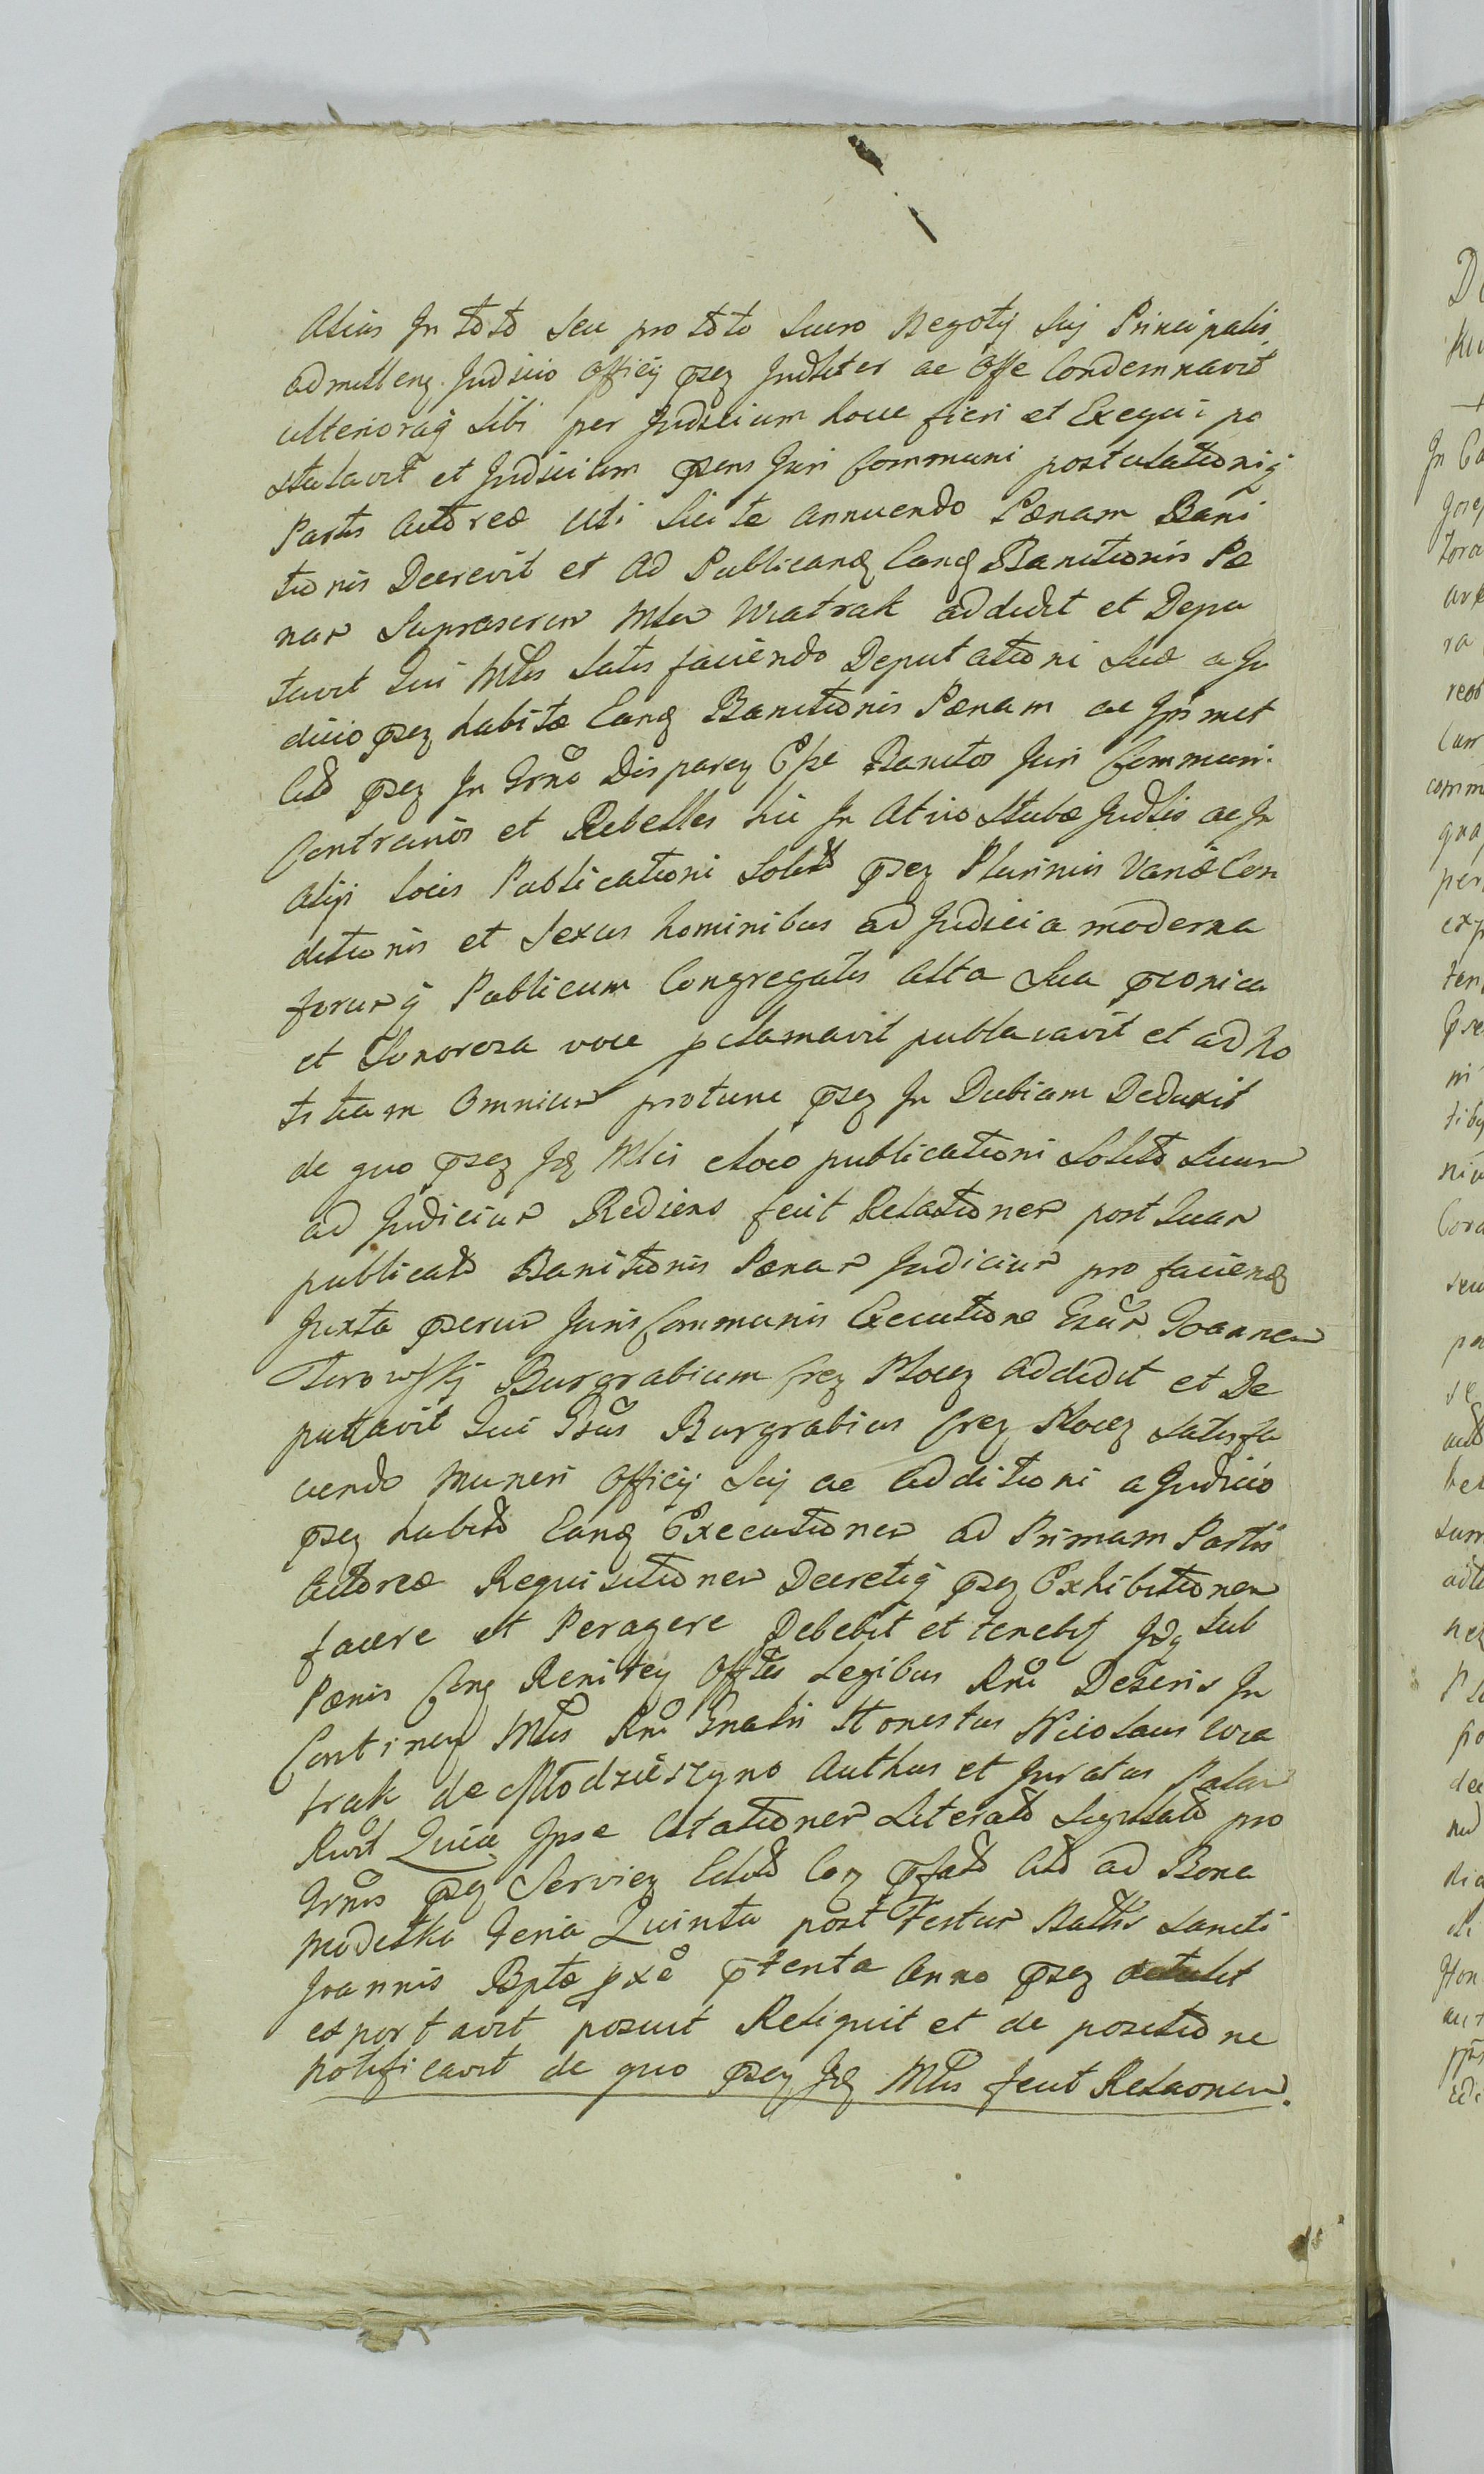 Alias In toto seu pro toto lucro Negotÿ Sui Principalis
admitteng Judicio Officij psez Judlter ac Offe Condemnavit
ulteriorag Sibi per Judicium hocce fieri et Exequi po
stulavit et Judicium psens Juri Communi postulationiq
Partis Actoreæ uti Licitæ annuendo Pænam Bani
tionis Decrevit et ad Publicand Eand Banitionis Pæ
nam Suprascrin Mlem Wiatrak addidit et Depu
tavit Qui Mlis Satisfaciendo Deputationi Suæ a Ju
dicio psez habitæ Eand Banitionis Pænam ac Ipsmet
Citd psez In Trno Disparez Esse Banitos Juri Communi
Contrarios et Rebelles hic In Atrio Stubæ Judlis ac In
alijs Locis Publicationi Solitd psez Plurimis Variæ Con
ditionis et Sexus hominibus ad Judicia moderna
forumq Publicum Congregatis alta Sua præonica
et Sonorosa voce pclamavit publicavit et ad No
titiam Omnium protunc psez In Dubiam Deduxit
de quo psez Id Mlis eloco publicationi Solitd Suam
ad Judicium Rediens fecit Relationem post Quam
publicatd Banitionis Pænam Judicium pro faciend
Juxta pserum Juris Communis Executione Gsum Joannem
Turowskj Burgrabium Crez Plocez addidit et De
putavit Qui Gsus Burgrabius Crez Plocez Satisfa
ciendo Muneri Officij Sui ac additioni a Judicio
psez habitd Eand Executionem ad Primam Partis
Actoreæ Requisitionem Decretiq psez Exhibitionem
facere et Peragere Debebit et tenebit Idq Sub
Pænis Conz Renitez Offtes Legibus Rni Descris In
Continez Mlis Rni Gnalis Honestus Nicolaus Wia
trak de Młodzieszyno Authus et Juratus Palam
Rvit Quia Ipse Citationem Literatd Sigillatd pro
Trnis psez Serviez Editd Coz pfatd Citd ad Bona
Modetka Feria Quinta post Festum Natlis Sancti
Joannis Bptæ pxe ptenta Anno psez detulit
exportavit posuit Reliquit et de positione
Notificavit de quo psez Id Mlis fecit Relaonem.